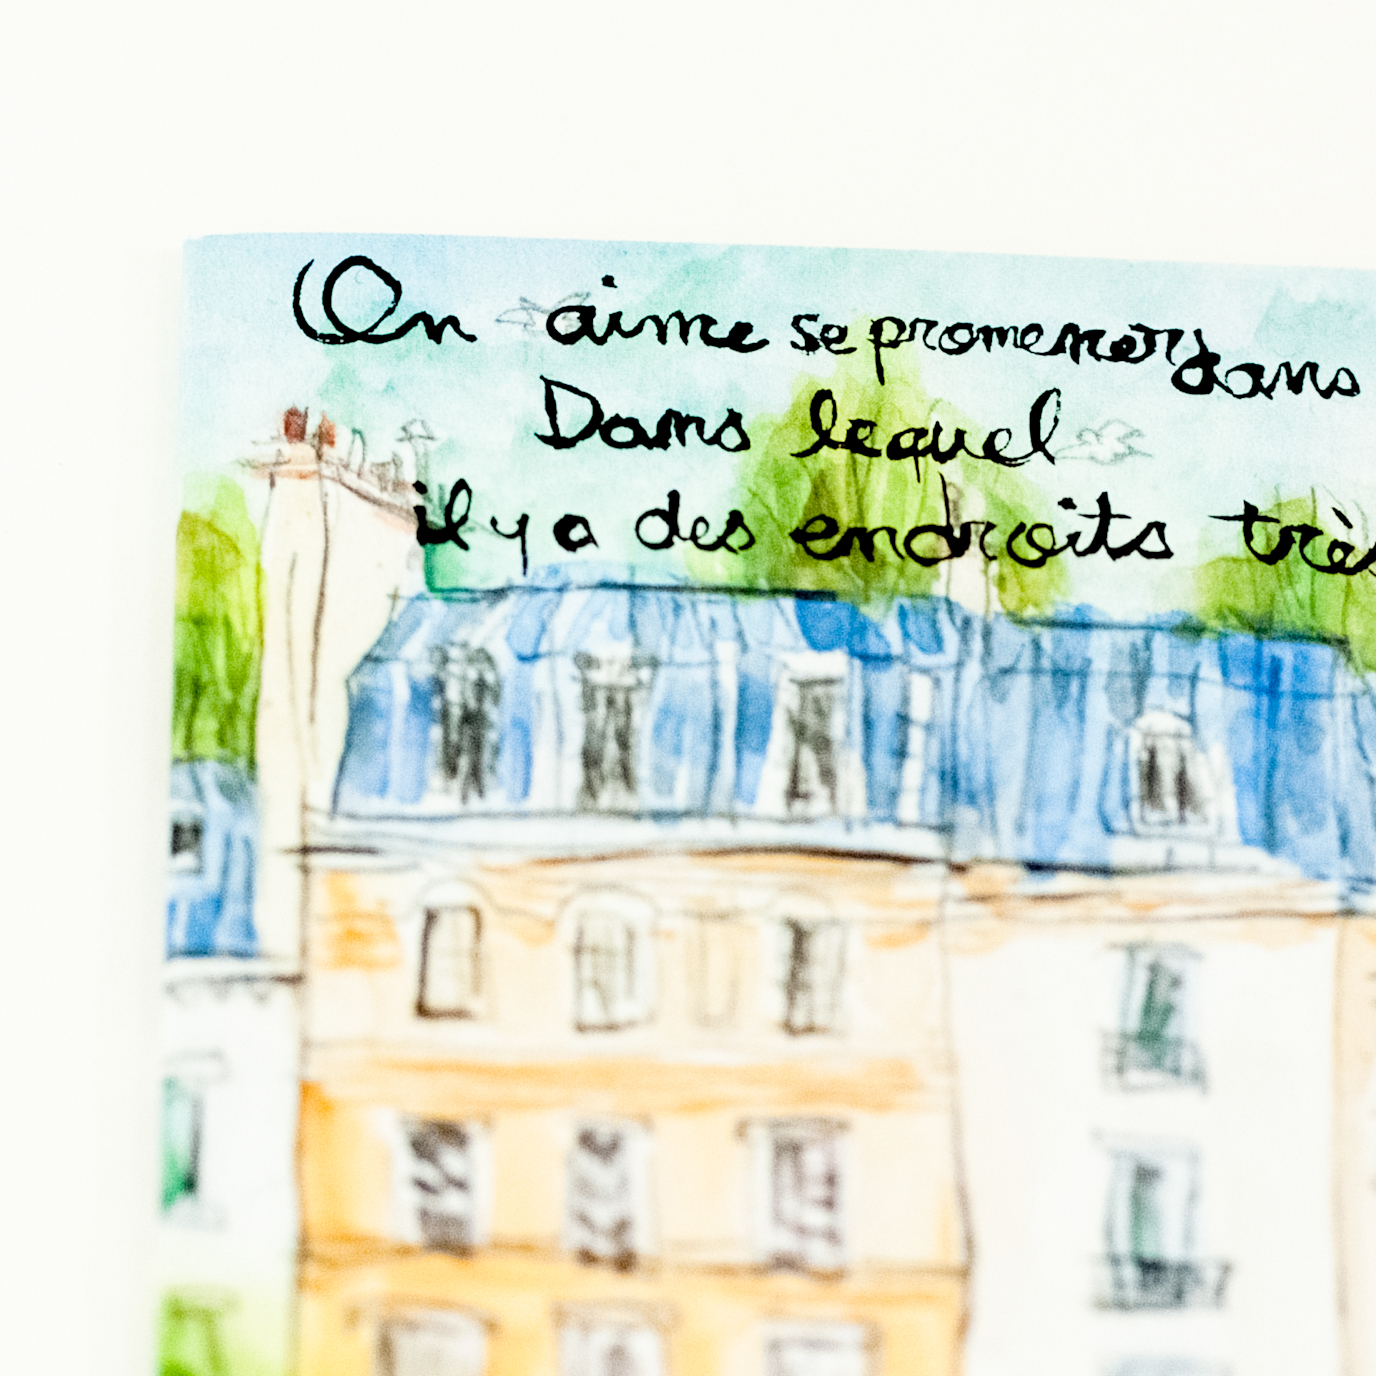 On aime se promener dans
Dans lequel
il y a des endroits très